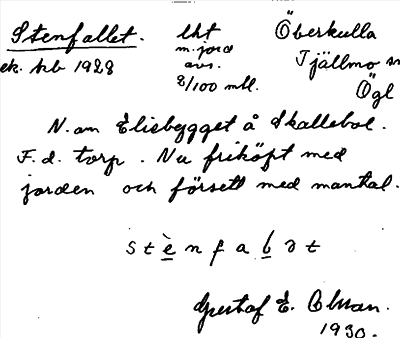 Stenfallet. lht Överkulla
m. jord
ek. kb 1928 avs. Tjällmo sn
8/100 mtl. Ögl
N. om Eliebygget å Skallebol.
F. d. torp. Nu friköpt med
jorden och försett med mantal.
s t è n f a b ə t
Gustaf E. Olsson.
1930.